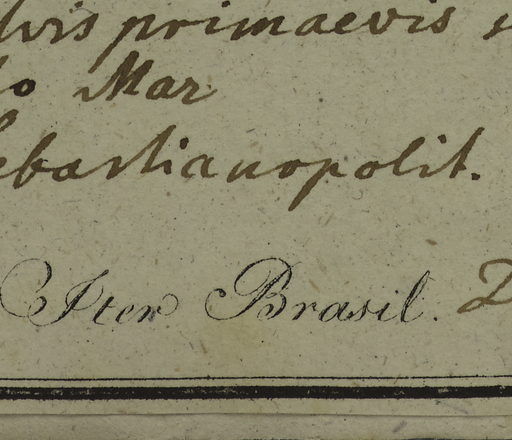 lvis primaevis
do Mar
ebastianopolit.
Iter Brasil. 2